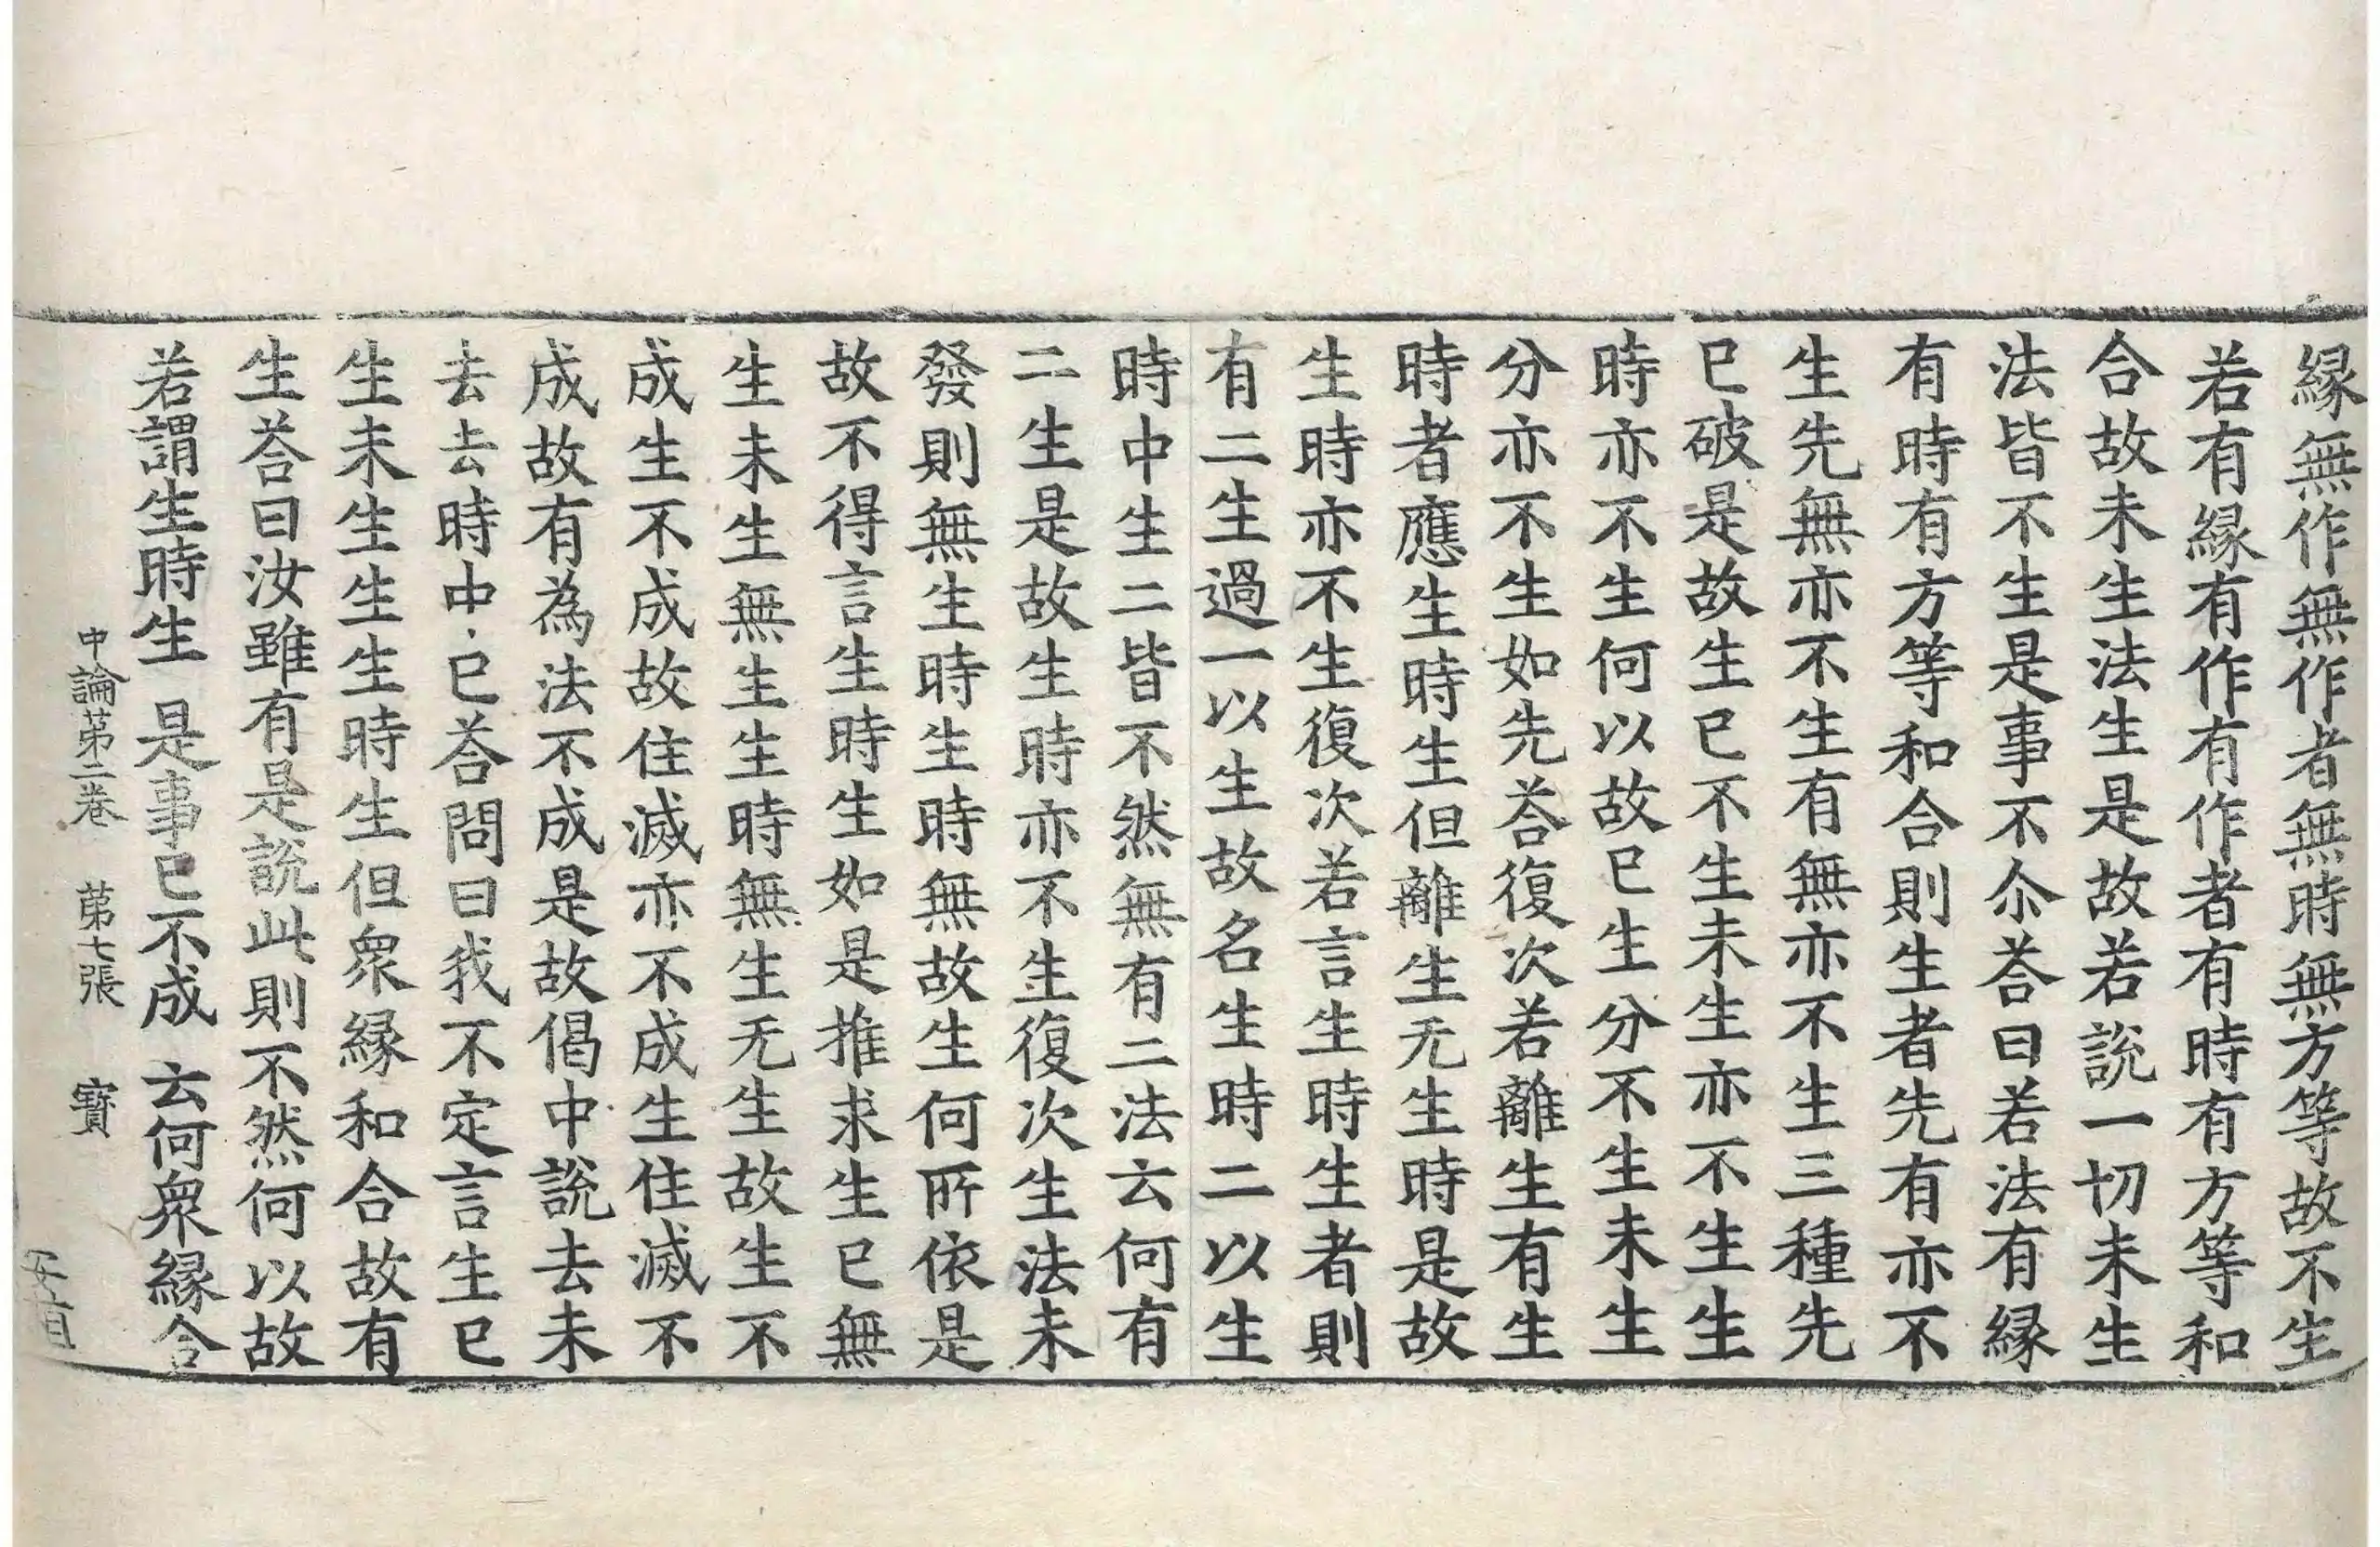 縁無作無作者無時無方等故不生
若有縁有作有作者有時有方等和
合故未生法生是故若說一切未生
法皆不生是事不尒荅曰若法有縁
有時有方等和合則生者先有亦不
生先無亦不生有無亦不生三種先
已破是故生已不生未生亦不生生
時亦不生何以故已生分不生未生
分亦不生如先荅復次若離生有生
時者應生時生但離生无生時是故
生時亦不生復次若言生時生者則
有二生過一以生故名生時二以生
時中生二皆不然無有二法云何有
二生是故生時亦不生復次生法未
發則無生時生時無故生何所依是
故不得言生時生如是推求生已無
生未生無生生時無生无生故生不
成生不成故住滅亦不成生住滅不
成故有為法不成是故偈中說去未
去去時中已荅問曰我不定言生已
生未生生生時生但衆縁和合故有
生荅曰汝雖有是說此則不然何以故
若謂生時生 是事已不成 云何衆縁合
中論第二卷 第七張 寶